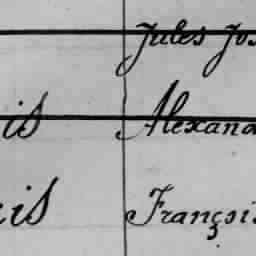 Jules Jos
is Alexand
is François